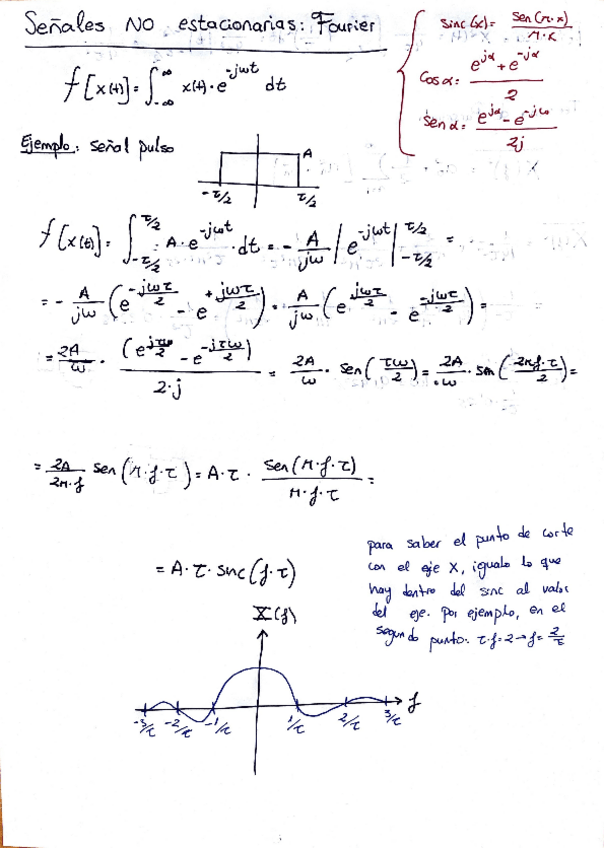 Señales NO estacionarias: Fourier
f[x(t)] = ∫_{-∞}^{∞} x(t)·e^{-jωt} dt
Sinc(x) = Sen(π·x) / π·x
Cos α = (e^{jα} + e^{-jα}) / 2
Sen α = (e^{jα} - e^{-jω}) / 2j
Ejemplo: señal pulso
A
-τ/2 τ/2
f[x(t)] = ∫_{-τ/2}^{τ/2} A·e^{-jωt}·dt = - A/jω | e^{-jωt} |_{-τ/2}^{τ/2} =
= - A/jω (e^{-jωτ/2} - e^{+jωτ/2}) = A/jω (e^{jωτ/2} - e^{-jωτ/2}) =
= 2A/ω · (e^{jτω/2} - e^{-jτω/2}) / 2·j = 2A/ω · sen(τω/2) = 2A/ω · sen(2πf·τ/2) =
= 2A/2π·f sen(π·f·τ) = A·τ · sen(π·f·τ) / π·f·τ =
= A·τ·sinc(f·τ)
para saber el punto de corte
con el eje X, igualo lo que
hay dentro del sinc al valor
del eje. Por ejemplo, en el
segundo punto: τ·f=2→f=2/τ
X(f)
f
-3/τ -2/τ -1/τ 1/τ 2/τ 3/τ